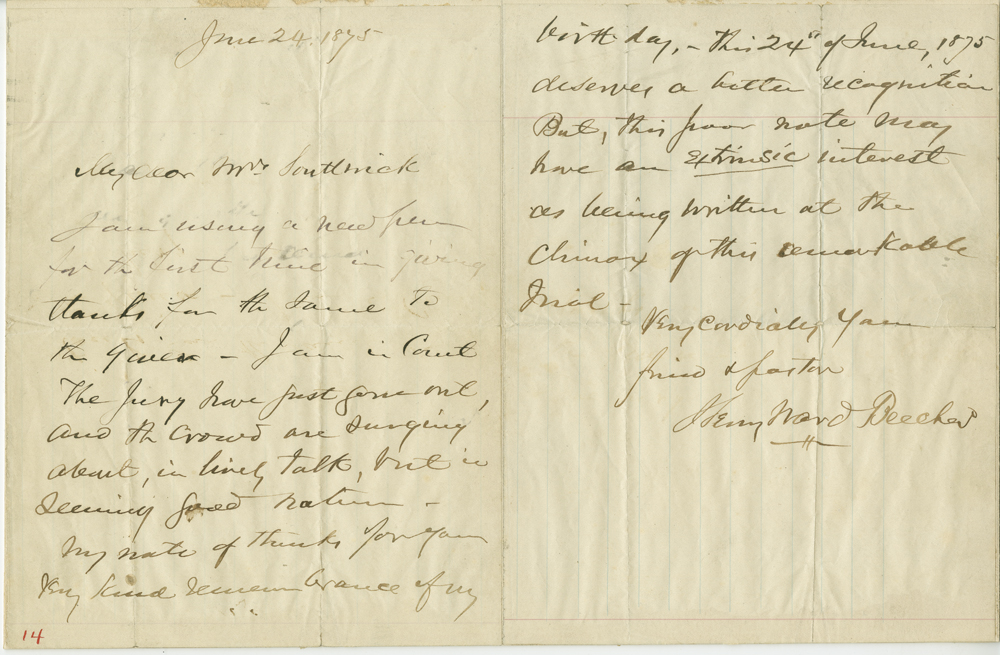 June 24. 1875
My dear Mrs Southwick
I am using a new pen
for the first time in giving
thanks for the same to
the giver — I am in Court
The Jury have just gone out,
and the crowd are surging
about, in lively talk, but in
seeming good nature —
My note of thanks for your
very kind remembrance of my
birth day, — this 24th of June, 1875
deserves a better recognition
But, this poor note may
have an extrinsic interest
as being written at the
Climax of this remarkable
Trial —
Very Cordially Your
friend & pastor
Henry Ward Beecher
14